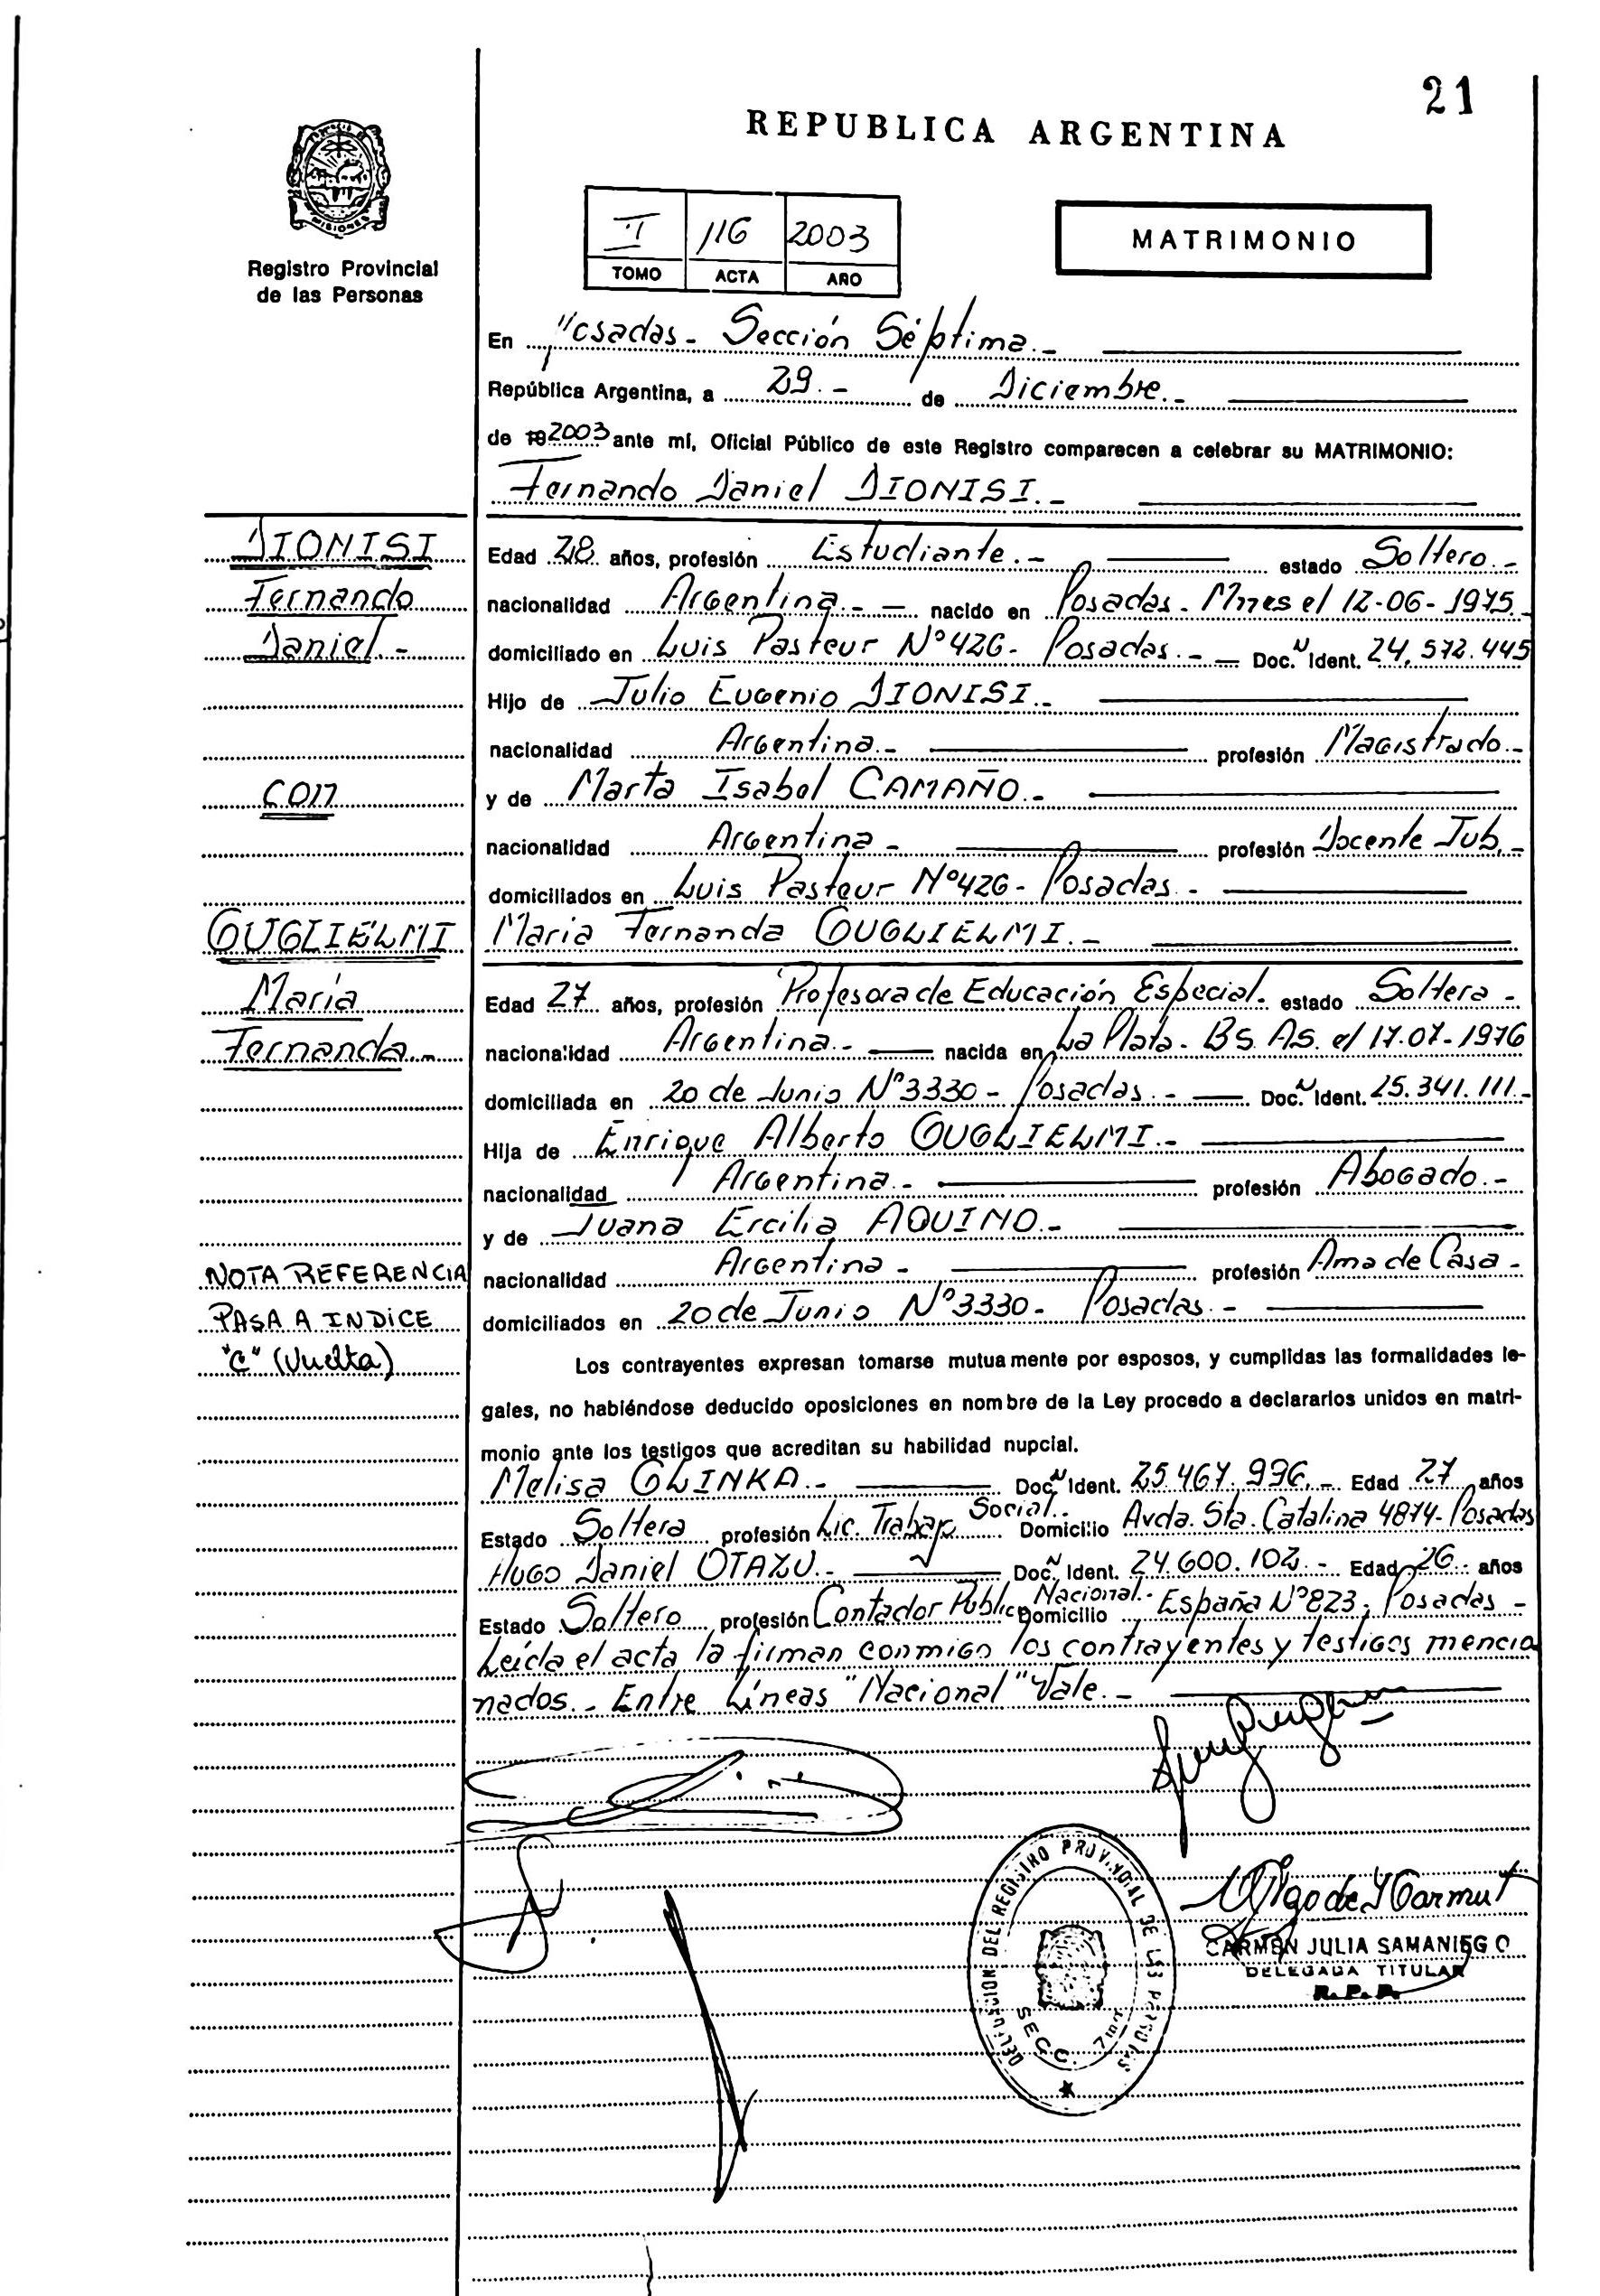 21
REPUBLICA ARGENTINA
MISIONES
Registro Provincial
de las Personas
I 116 2003
TOMO ACTA AÑO
MATRIMONIO
En Posadas - Sección Séptima.-
República Argentina, a 29.- de Diciembre.-
de 19 2003 ante mí, Oficial Público de este Registro comparecen a celebrar su MATRIMONIO:
Fernando Daniel DIONISI.-
DIONISI
Fernando
Daniel.-
CON
GUGLIELMI
María
Fernanda.-
NOTA REFERENCIA
PASA A INDICE
"C" (Vuelta)
Edad 28 años, profesión Estudiante.- estado Soltero.-
nacionalidad Argentina.- nacido en Posadas - Mnes el 12-06-1975.-
domiciliado en Luis Pasteur N° 426 - Posadas.- Doc. N Ident. 24.572.445
Hijo de Julio Eugenio DIONISI.-
nacionalidad Argentina.- profesión Magistrado.-
y de Marta Isabel CAMAÑO.-
nacionalidad Argentina - profesión Docente Jub.-
domiciliados en Luis Pasteur N° 426 - Posadas.-
Maria Fernanda GUGLIELMI.-
Edad 27 años, profesión Profesora de Educación Especial. estado Soltera -
nacionalidad Argentina.- nacida en La Plata - BS. AS. el 17-07-1976
domiciliada en 20 de Junio N° 3330 - Posadas.- Doc. N Ident. 25.341.111.-
Hija de Enrique Alberto GUGLIELMI.-
nacionalidad Argentina.- profesión Abogado.-
y de Juana Ercilia AQUINO.-
nacionalidad Argentina - profesión Ama de Casa -
domiciliados en 20 de Junio N° 3330 - Posadas.-
Los contrayentes expresan tomarse mutuamente por esposos, y cumplidas las formalidades le-
gales, no habiéndose deducido oposiciones en nombre de la Ley procedo a declararlos unidos en matri-
monio ante los testigos que acreditan su habilidad nupcial.
Melisa GLINKA.- Doc. N Ident. 25.467.996.- Edad 27 años
Estado Soltera profesión Lic. Trabajo Social.- Domicilio Avda. Sta. Catalina 4874 - Posadas
Hugo Daniel OTAZU.- Doc. N Ident. 24.600.102.- Edad 26 años
Estado Soltero profesión Contador Público Nacional.- Domicilio España N° 823, Posadas -
Leída el acta la firman conmigo los contrayentes y testigos mencio
nados.- Entre Líneas "Nacional" Vale.-
DELEGACION DEL REGISTRO PROVINCIAL DE LAS PERSONAS
SECC. 7ma
CARMEN JULIA SAMANIEGO
DELEGADA TITULAR
R.P.P.